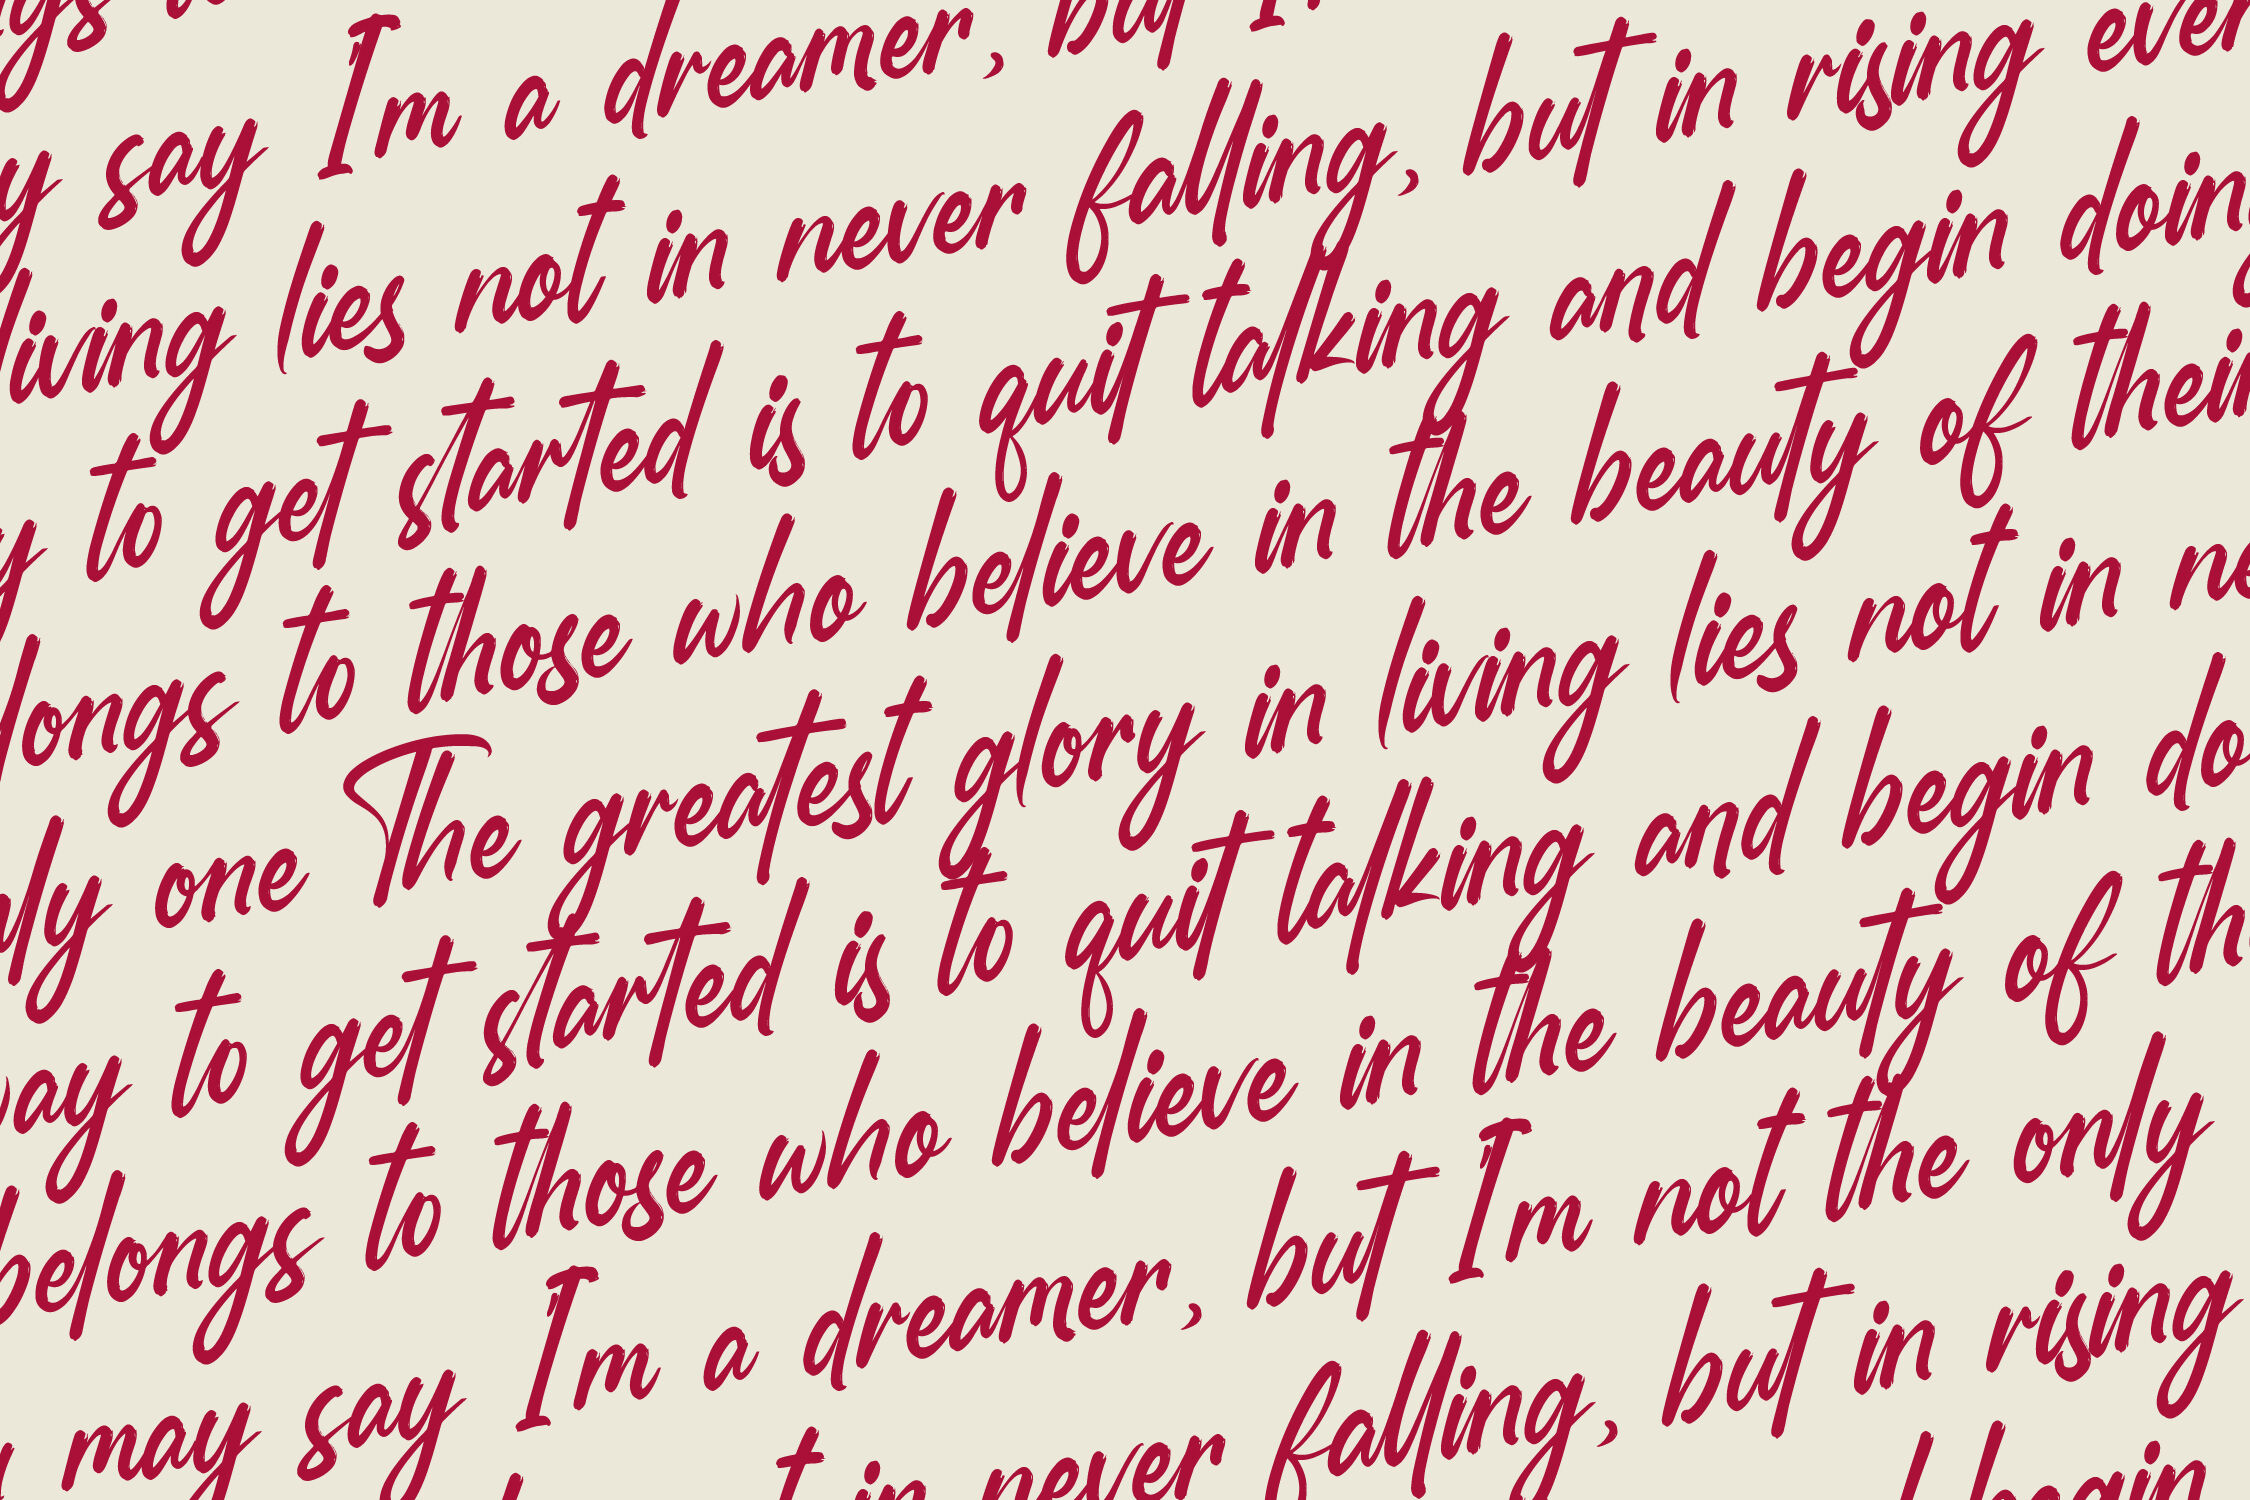 say Im a dreamer, but
living lies not in never falling, but in rising
to get started is to quit talking and begin doing
to those who believe in the beauty of their
one The greatest glory in living lies not in
to get started is to quit talking and begin
belongs to those who believe in the beauty of
may say Im a dreamer, but Im not the only
in never falling, but in rising
begin